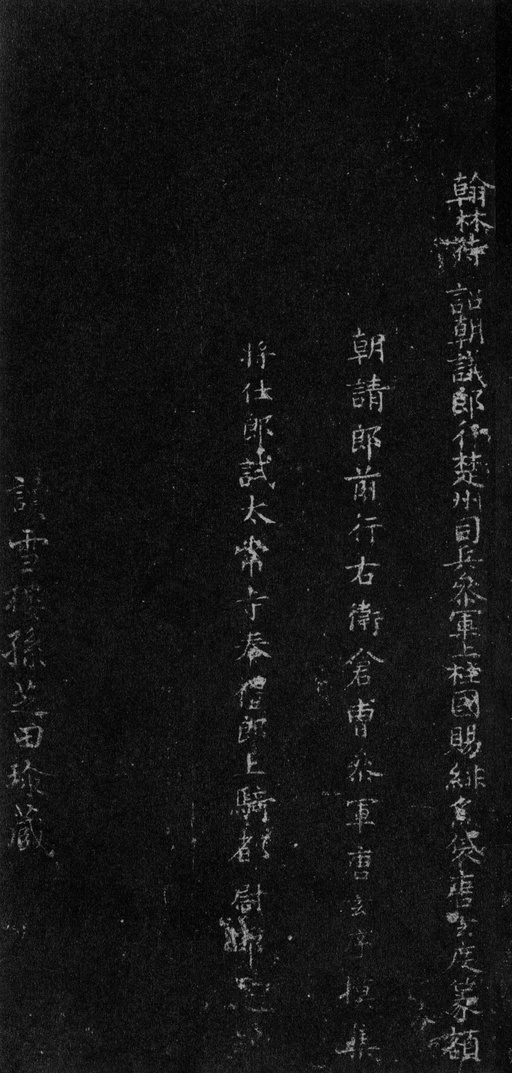 翰林待 詔朝議郎行楚州司兵叅軍上柱國賜緋魚袋唐玄度篆額
朝請郎前行右衛倉曹叅軍唐玄序模集
將仕郎試太常寺奉禮郎上騎都尉邵
讀雪樓孫芝田珍藏